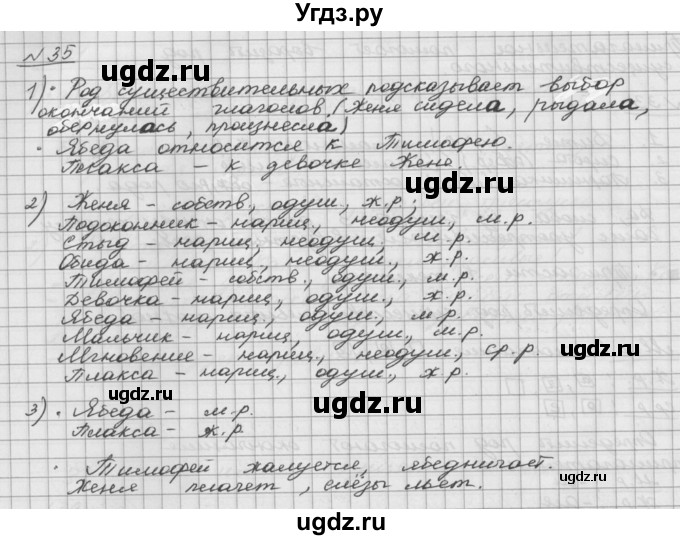 Угдз.ру
№35
1) • Род существительных подсказывает выбор
окончаний глаголов (Женя сидела, рыдала,
обернулась, произнесла)
• Ябеда относится к Тимофею.
Плакса – к девочке Жене.
2) Женя – собств., одуш., ж.р.;
Подоконник – нариц., неодуш., м.р.
Стыд – нариц., неодуш., м.р.
Обида – нариц., неодуш., ж.р.
Тимофей – собств., одуш., м.р.
Девочка – нариц., одуш., ж.р.
Ябеда – нариц., одуш., м.р.
Мальчик – нариц., одуш., м.р.
Мгновение – нариц., неодуш., ср.р.
Плакса – нариц., одуш., ж.р.
3) • Ябеда – м.р.
Плакса – ж.р
• Тимофей жалуется, ябедничает.
Женя плачет, слёзы льёт.
ugdz.ru
ugdz.ru
ugdz.ru
ugdz.ru
ugdz.ru
ugdz.ru
ugdz.ru
ugdz.ru
ugdz.ru